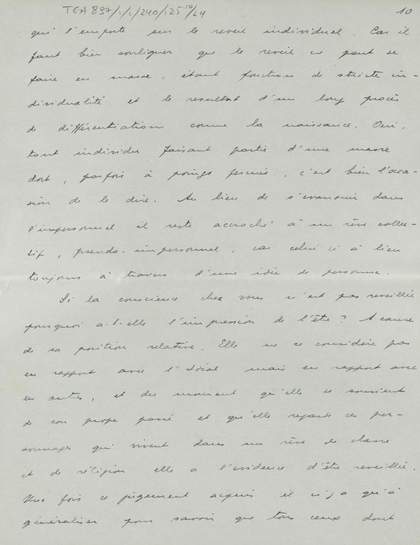 TGA 897/1/1/240/25 10/24
10
qui l'emporte sur le réveil individuel. Car il
faut bien souligner que le réveil ne peut se
faire en masse, étant fonction de stricte in-
dividualité et le résultat d'un long procès
de différentiation comme la naissance. Oui,
tout individu faisant partie d'une masse
dort, parfois à poings fermés, c'est bien l'occa-
sion de le dire. Au lieu de s'évanouir dans
l'impersonnel il reste accroché à un rêve collec-
tif, pseudo-impersonnel, car celui ci à lieu
toujours à travers d'une idée de personne.
Si la conscience chez vous n'est pas réveillée
pourquoi a-t-elle l'impression de l'être? A cause
de sa position relative. Elle ne se considère pas
en rapport avec l'Idéal mais en rapport avec
les autres, et dès moment qu'elle se souvient
de son propre passé et qu'elle regarde ces per-
sonnages qui vivent dans un rêve de classe
et de réligion elle a l'évidence d'être réveillée.
Une fois ce jugement acquis il n'y a qu'à
généraliser pour savoir que tous ceux dont